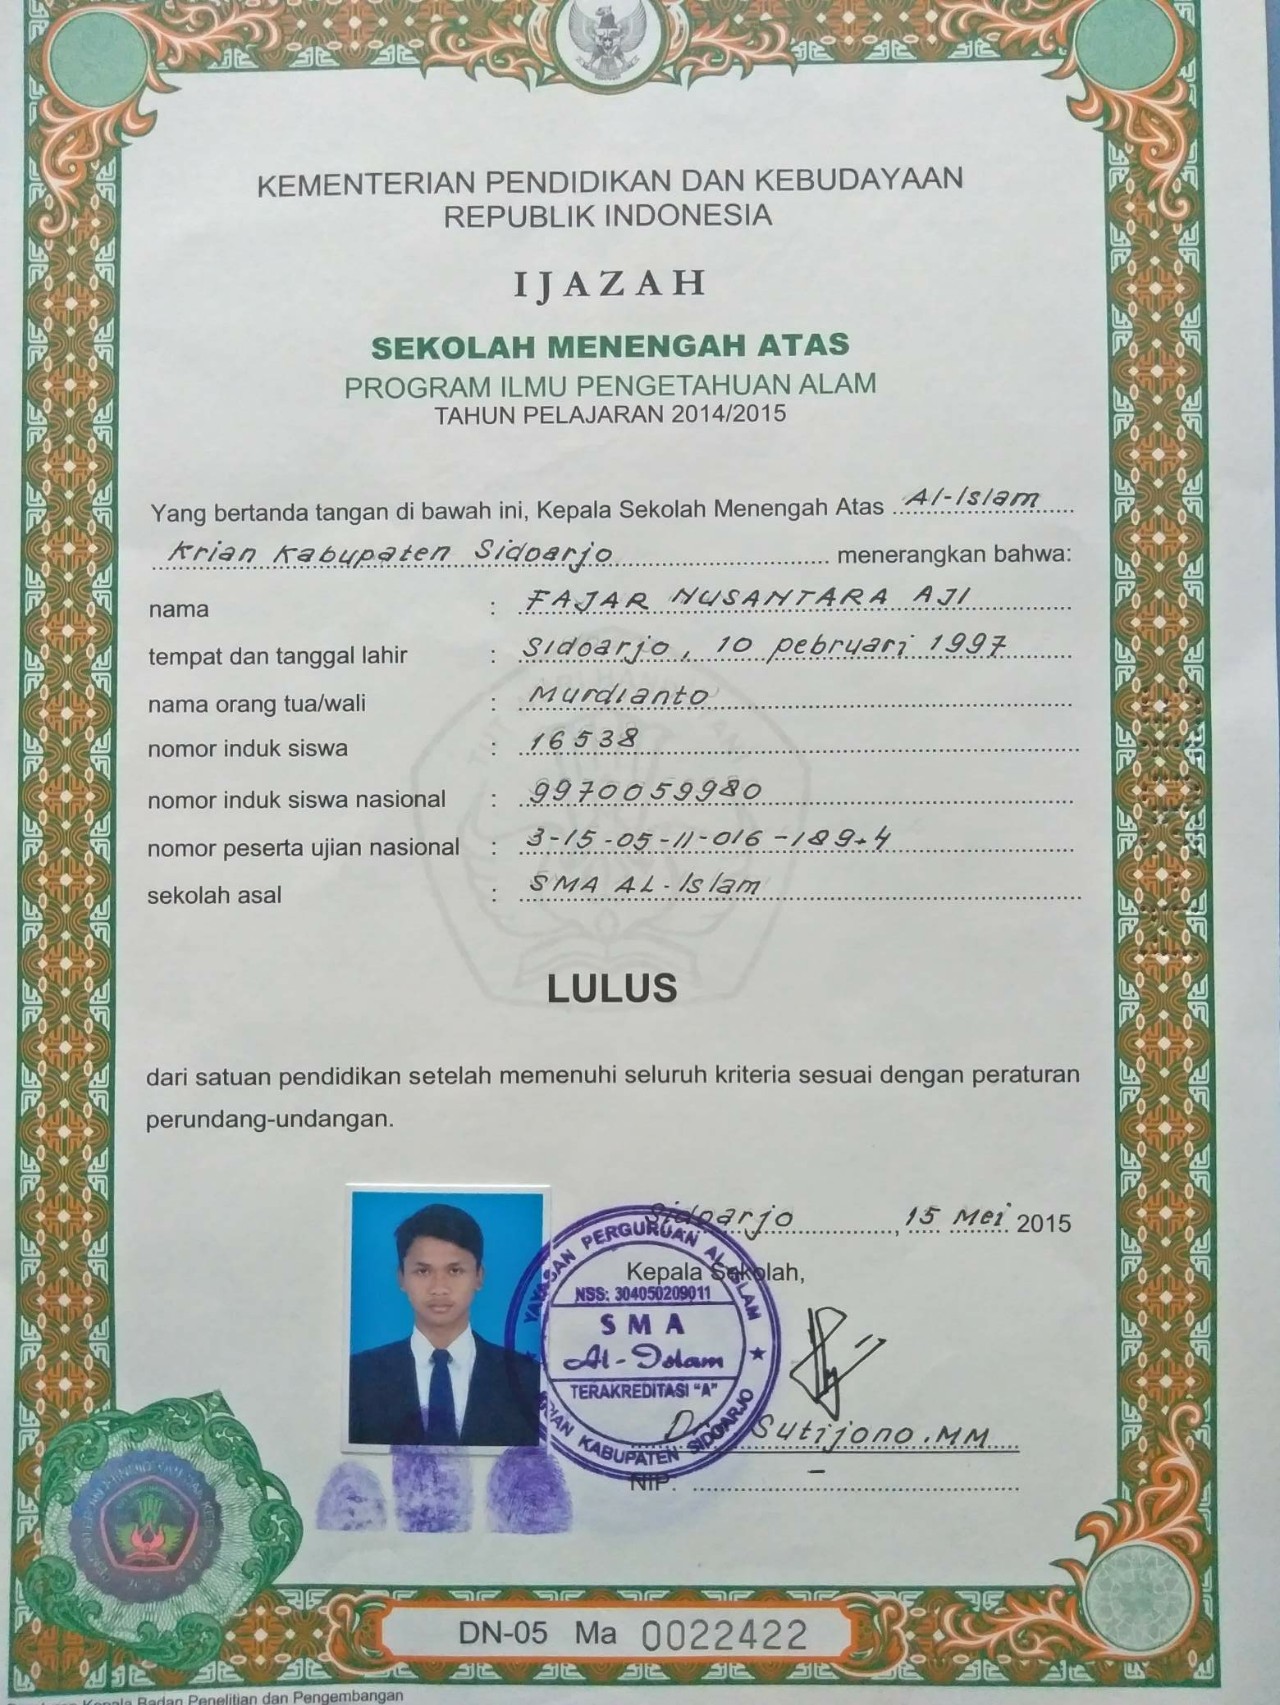 KEMENTERIAN PENDIDIKAN DAN KEBUDAYAAN
REPUBLIK INDONESIA
IJAZAH
SEKOLAH MENENGAH ATAS
PROGRAM ILMU PENGETAHUAN ALAM
TAHUN PELAJARAN 2014/2015
Yang bertanda tangan di bawah ini, Kepala Sekolah Menengah Atas Al-Islam
Krian Kabupaten Sidoarjo menerangkan bahwa:
nama : FAJAR NUSANTARA AJI
tempat dan tanggal lahir : Sidoarjo, 10 pebruari 1997
nama orang tua/wali : Murdianto
nomor induk siswa : 16538
nomor induk siswa nasional : 9970059980
nomor peserta ujian nasional : 3-15-05-11-016-189-4
sekolah asal : SMA AL-Islam
LULUS
dari satuan pendidikan setelah memenuhi seluruh kriteria sesuai dengan peraturan
perundang-undangan.
Sidoarjo, 15 Mei 2015
Kepala Sekolah,
YAYASAN PERGURUAN AL ISLAM
NSS: 304050209011
SMA
Al-Islam
TERAKREDITASI "A"
KRIAN KABUPATEN SIDOARJO
Sutijono.MM
NIP. -
DN-05 Ma 0022422
Kepala Badan Penelitian dan Pengembangan